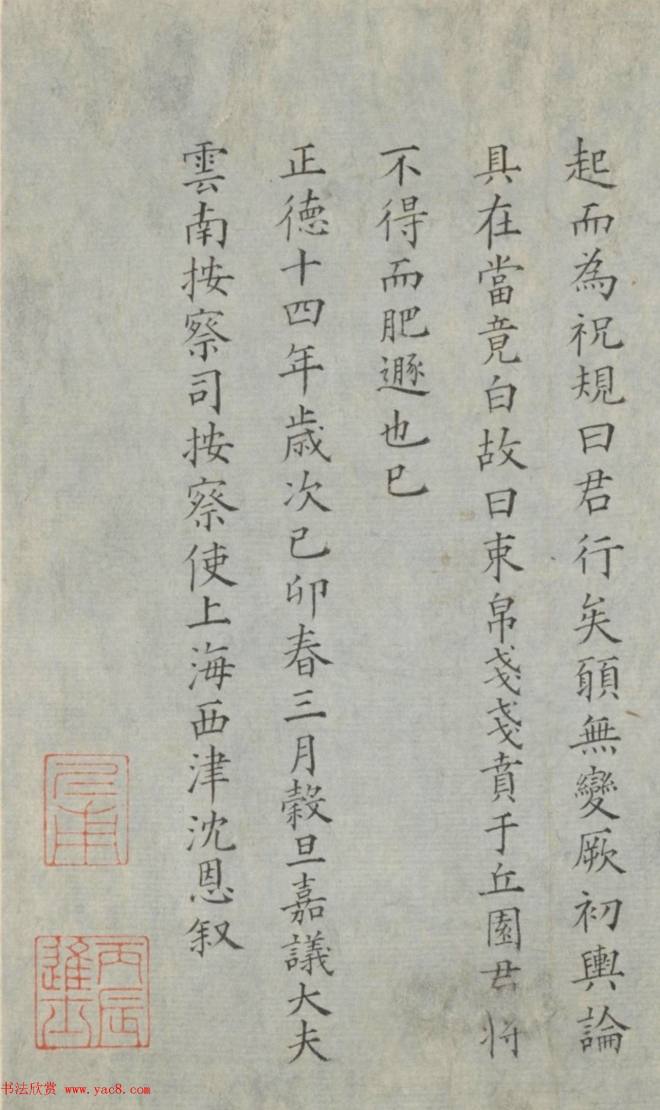 起而為祝規曰君行矣願無變厥初輿論
具在當竟白故曰束帛戔戔賁于丘園君將
不得而肥遯也已
正德十四年歲次己卯春三月穀旦嘉議大夫
雲南按察司按察使上海西津沈恩叙
仁甫
丙辰進士
书法欣赏 www.yac8.com